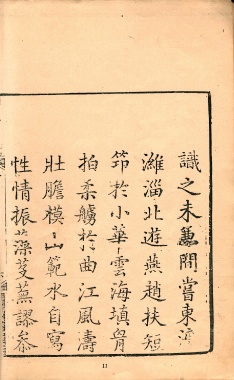 識之未嘗問嘗東涉
濰淄北遊燕趙扶短
筇於小華雲海填胷
拍柔艣於曲江風濤
壯膽模山範水自寫
性情振藻芟蕪謬叅
11